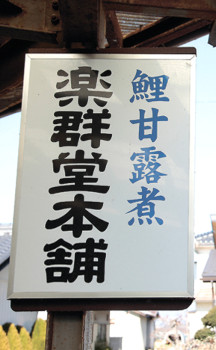 鯉甘露煮
楽群堂本舗